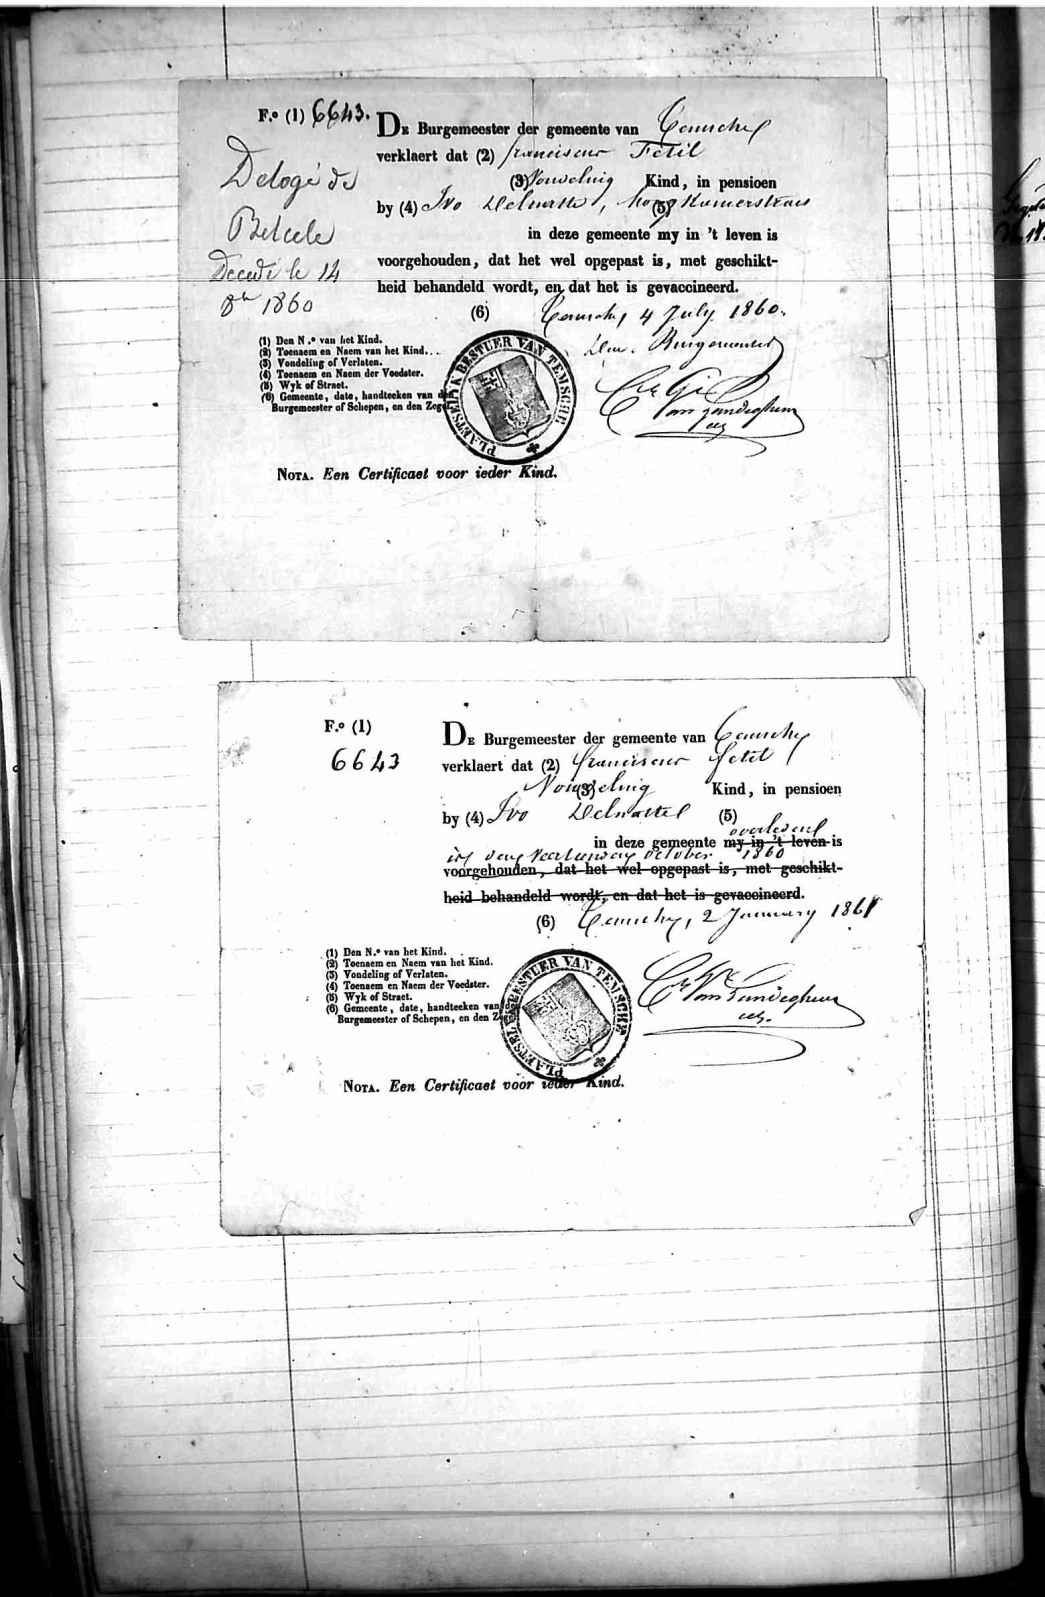 F.o (1) 6643.
DE Burgemeester der gemeente van Temsche
verklaert dat (2) franciscus Fetil
(3) Vondeling Kind, in pensioen
by (4) Ivo Delmatte, hoog kamerstraet (5)
in deze gemeente my in 't leven is
voorgehouden, dat het wel opgepast is, met geschikt-
heid behandeld wordt, en dat het is gevaccineerd.
(6) Temsche, 4 July 1860.
Den Burgemeester
Delogé de
Belcele
Décédé le 14
8bre 1860
(1) Den N.o van het Kind.
(2) Toenaem en Naem van het Kind.
(3) Vondeling of Verlaten.
(4) Toenaem en Naem der Voedster.
(5) Wyk of Straet.
(6) Gemeente, date, handteeken van den
Burgemeester of Schepen, en den Zegel
PLAETSELYK BESTUER VAN TEMSCHE
NOTA. Een Certificaet voor ieder Kind.
F.o (1)
6643
DE Burgemeester der gemeente van Temsche
verklaert dat (2) franciscus fetil
Vondeling (3) Kind, in pensioen
by (4) Ivo Delmattel (5)
overleden
in deze gemeente my in 't leven is
den veertienden october 1860
voorgehouden, dat het wel opgepast is, met geschikt-
heid behandeld wordt, en dat het is gevaccineerd.
(6) Temsche, 2 January 1861
(1) Den N.o van het Kind.
(2) Toenaem en Naem van het Kind.
(3) Vondeling of Verlaten.
(4) Toenaem en Naem der Voedster.
(5) Wyk of Straet.
(6) Gemeente, date, handteeken van
Burgemeester of Schepen, en den Zegel
PLAETSELYK BESTUER VAN TEMSCHE
NOTA. Een Certificaet voor ieder Kind.